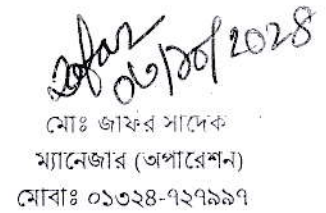 ০৬/১০/২০২৪
মোঃ জাফর সাদেক
ম্যানেজার (অপারেশন)
মোবাঃ ০১৩২৪-৭২৭৯৯৭